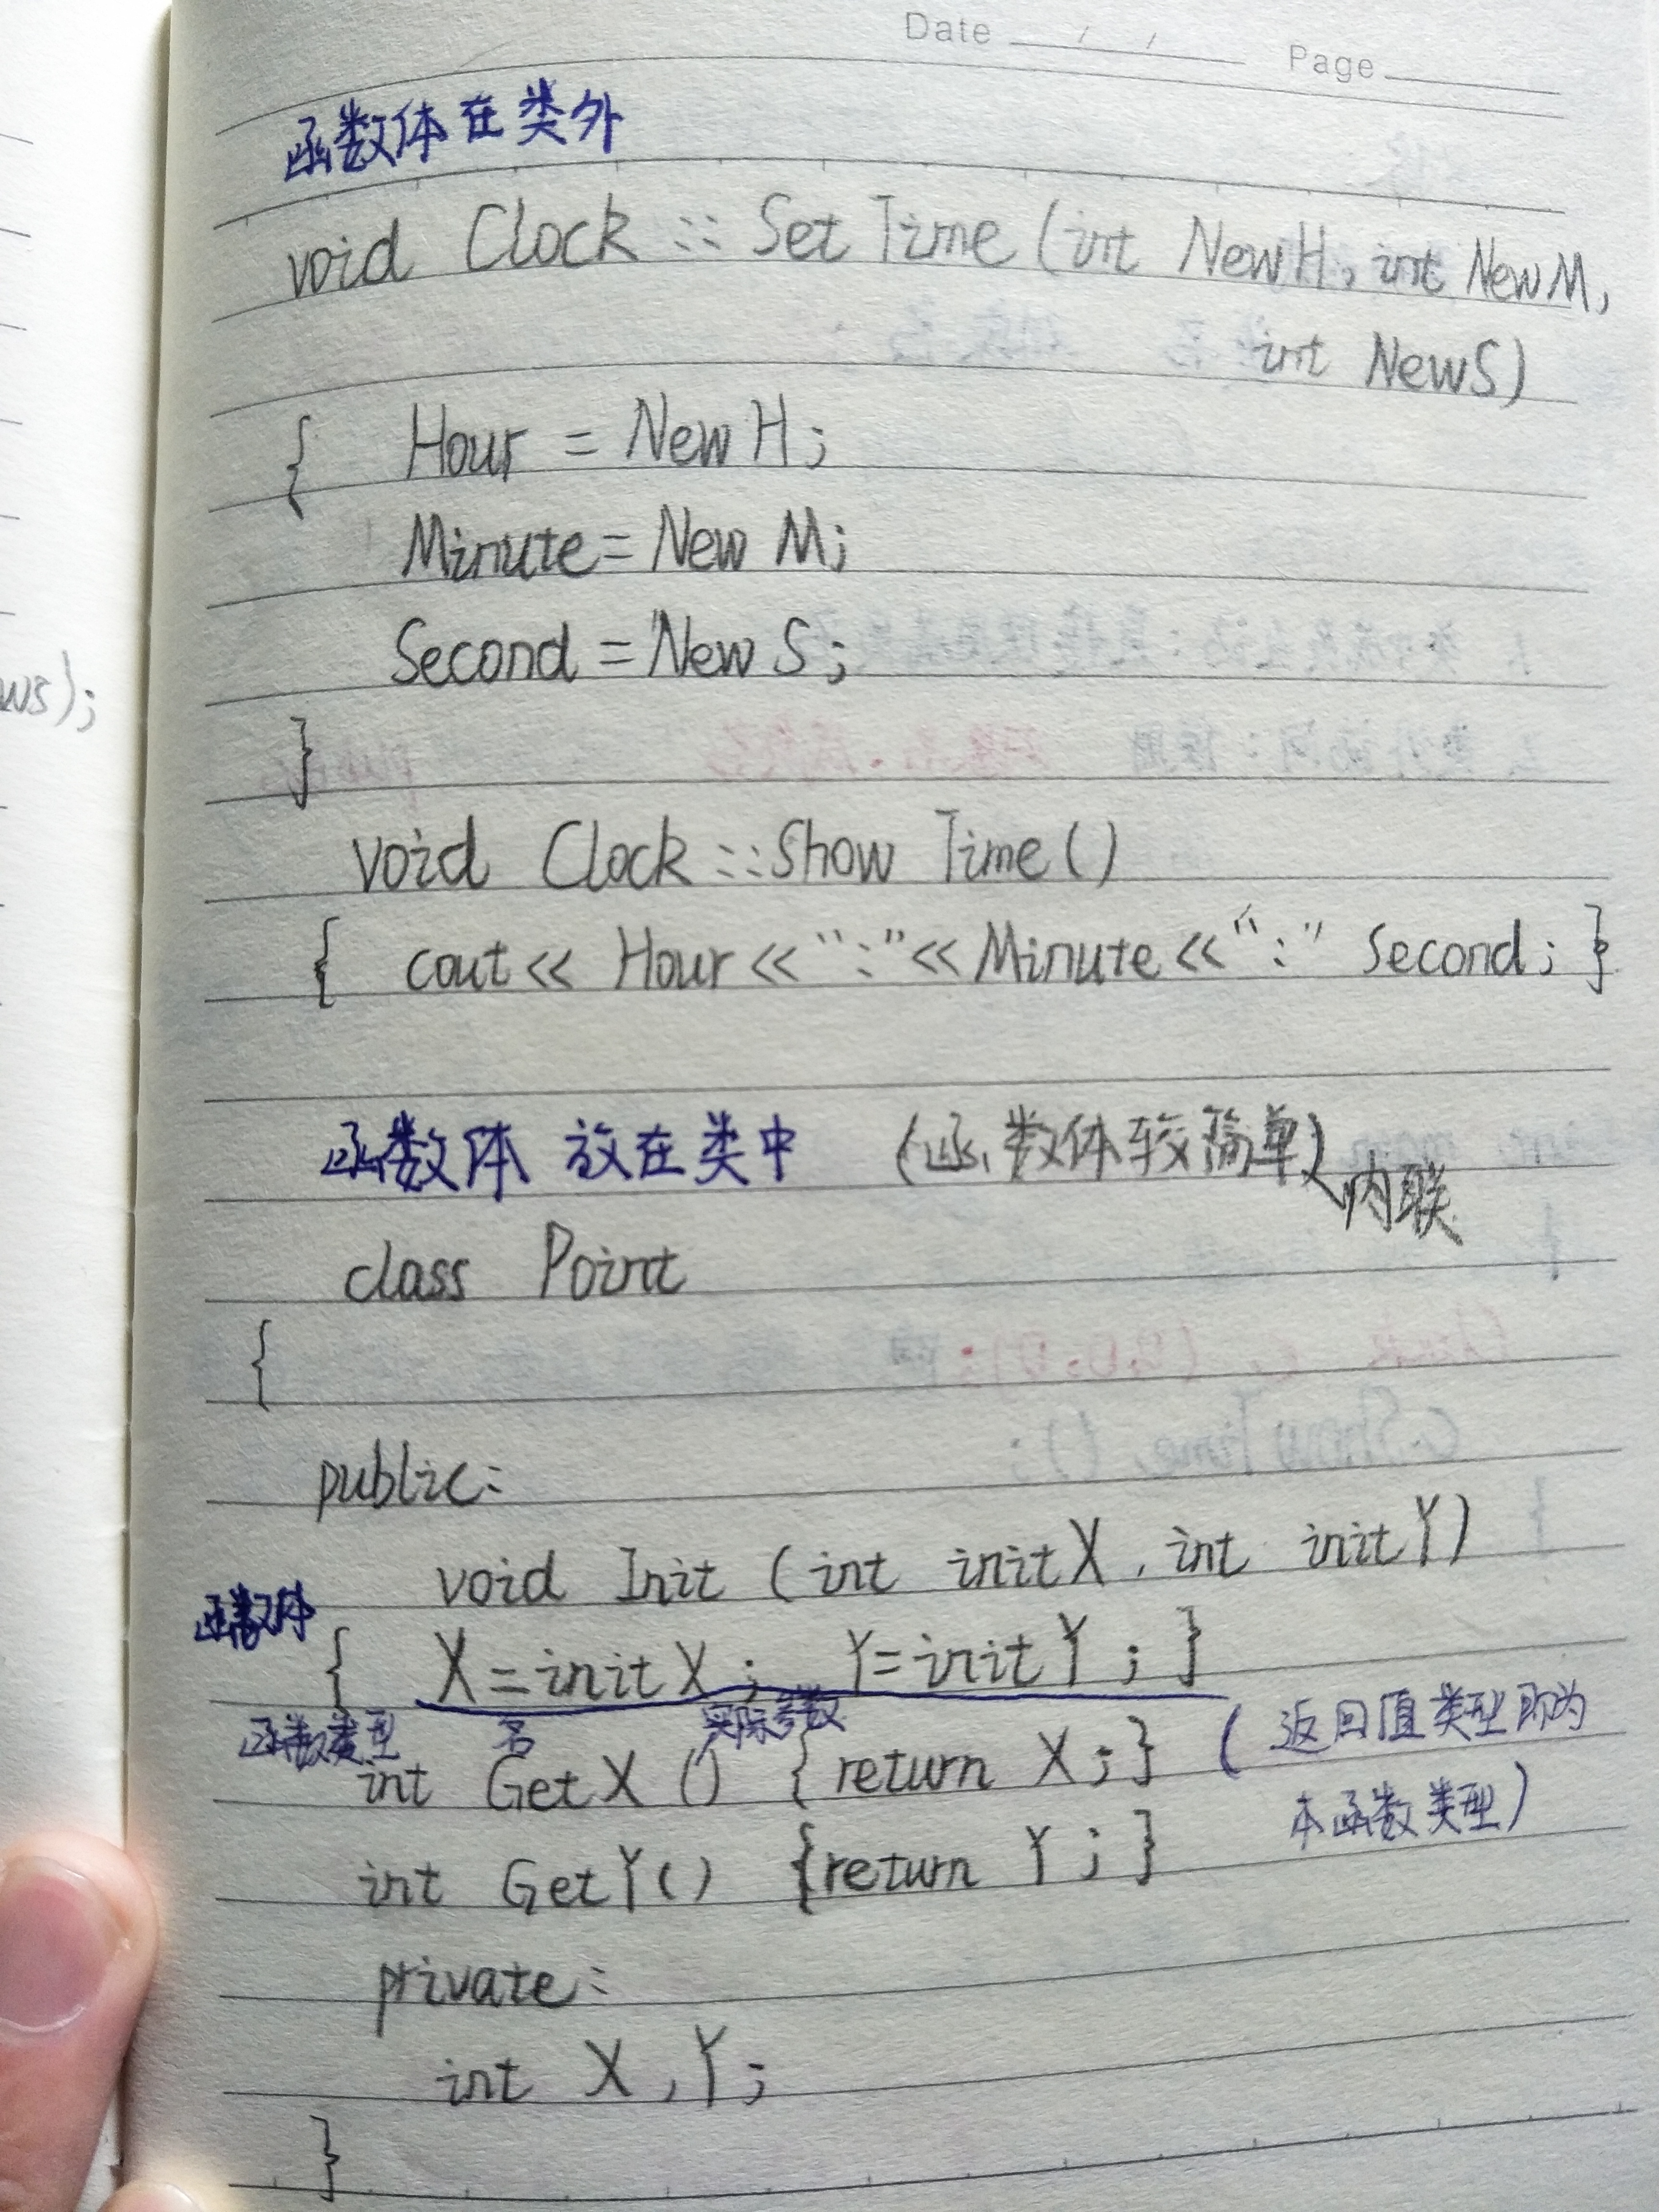 Date / / Page
函数体在类外
void Clock :: SetTime (int NewH, int NewM,
int NewS)
{ Hour = NewH;
Minute = NewM;
Second = NewS;
ws);
}
void Clock :: Show Time ()
{ cout << Hour << ":" << Minute << ":" Second; }
函数体 放在类中 (函数体较简单) 内联
class Point
{
public:
void Init (int initX, int initY)
函数体
{ X = initX; Y = initY; }
函数类型 名 实际参数 (返回值类型即为
int GetX () { return X; }
本函数类型)
int GetY() {return Y; }
private:
int X, Y;
}